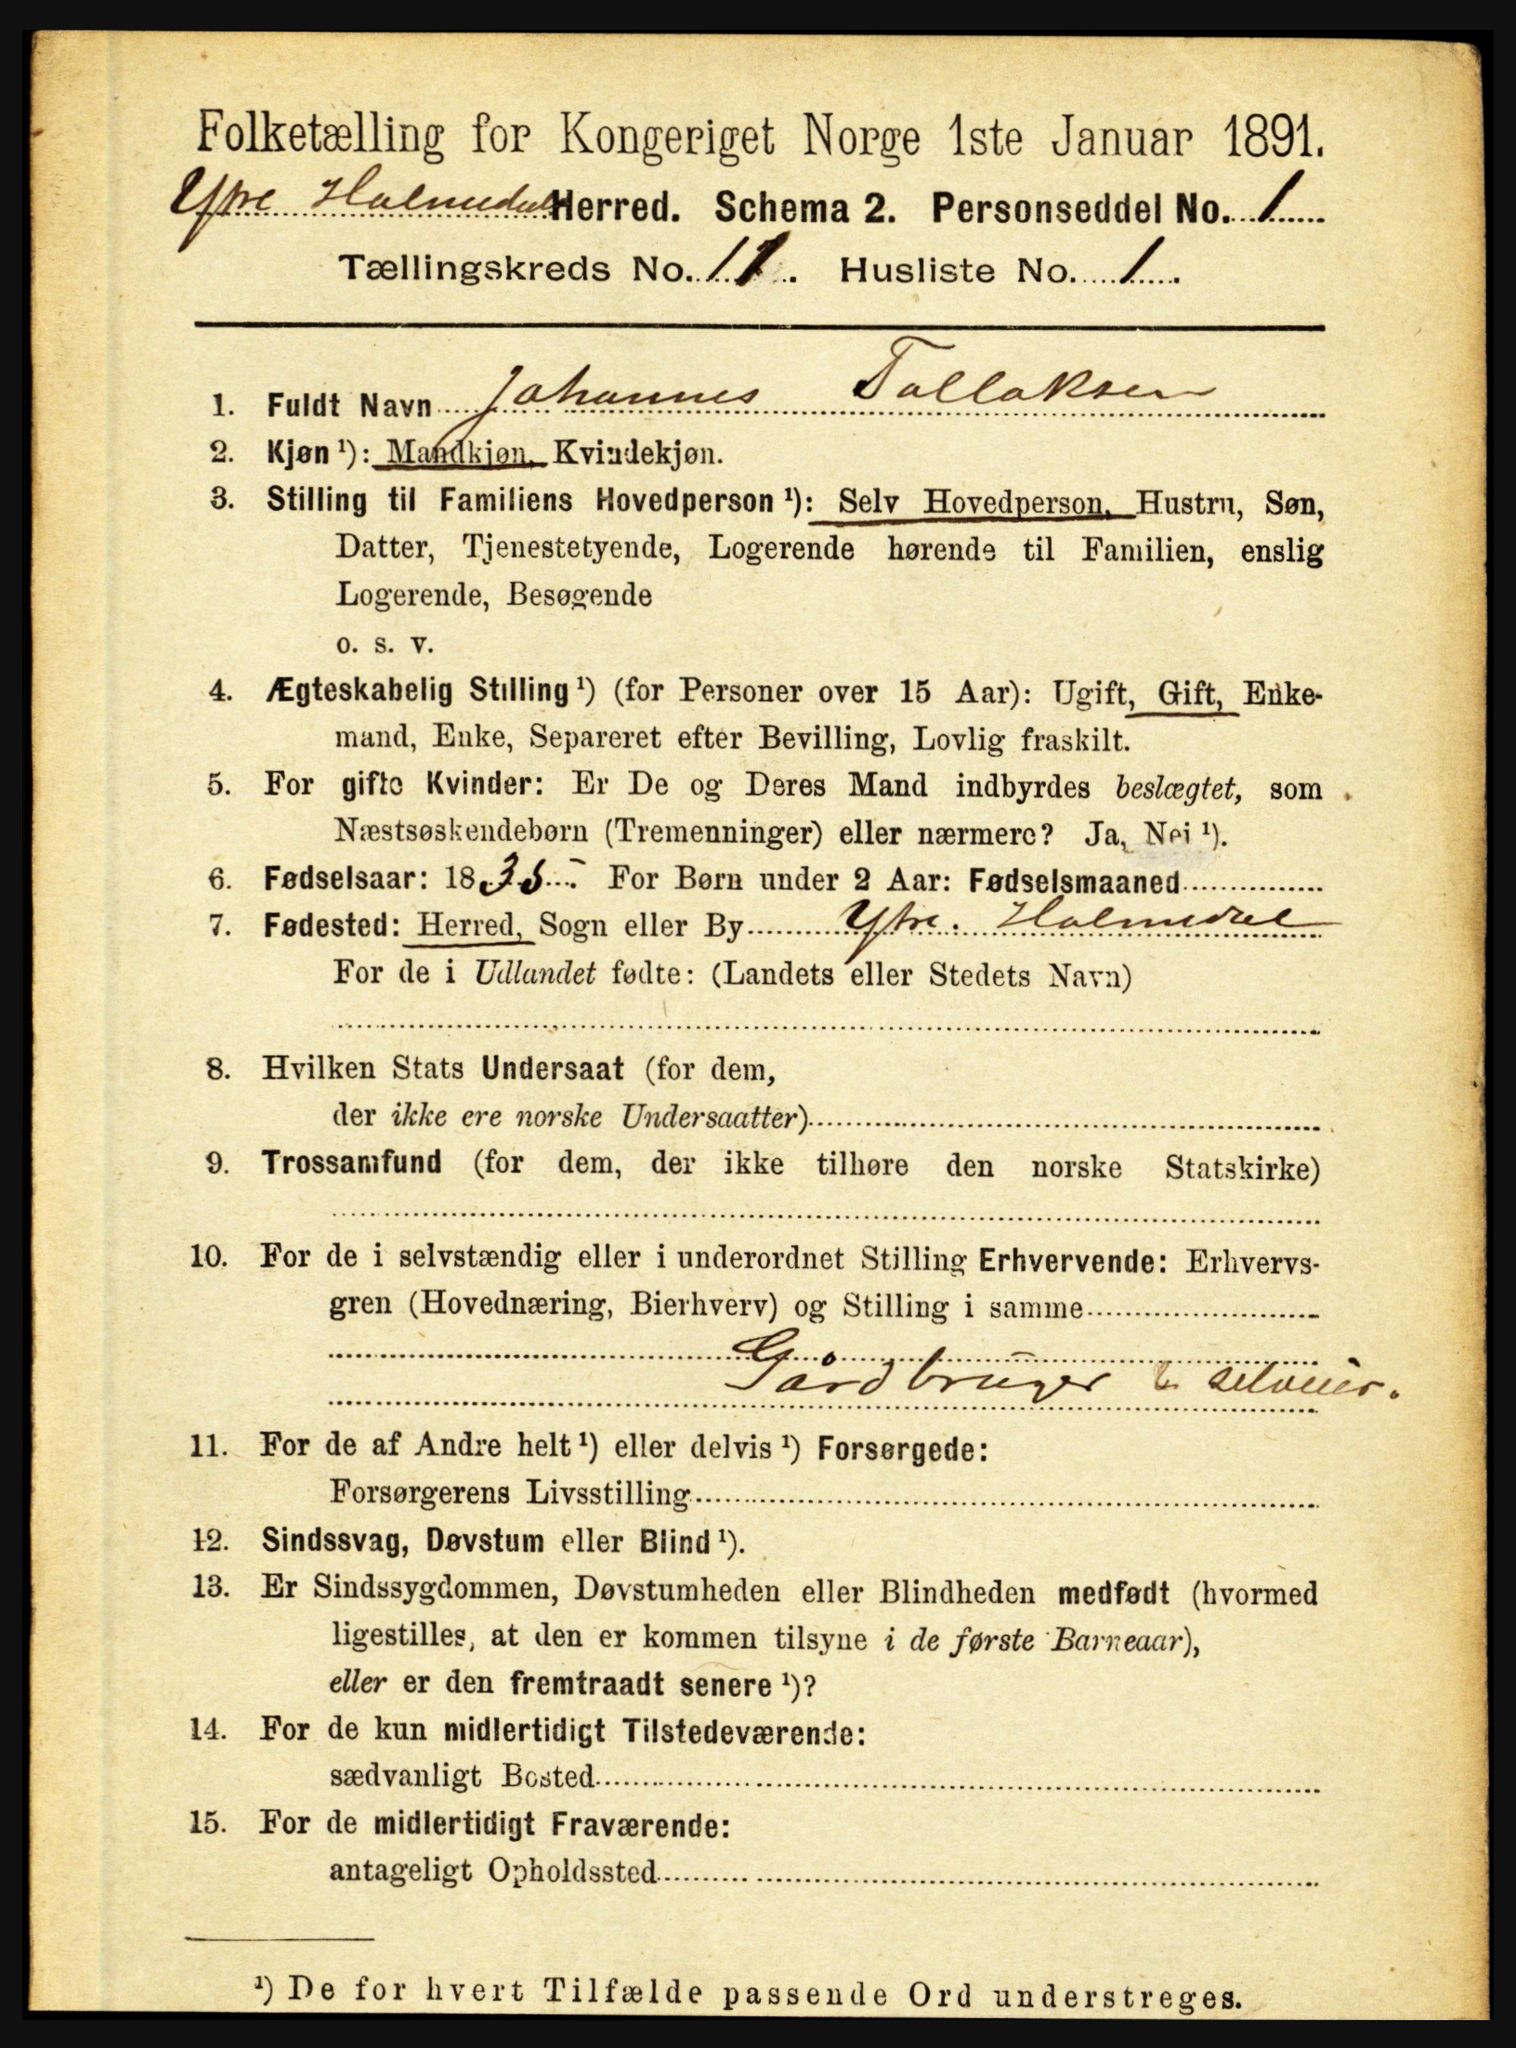 Folketælling for Kongeriget Norge 1ste Januar 1891.
Ytre Holmedal Herred. Schema 2. Personseddel No. 1
Tællingskreds No. 11. Husliste No. 1.
1. Fuldt Navn Johannes Tollaksen
2. Kjøn ¹): Mandkjøn, Kvindekjøn.
3. Stilling til Familiens Hovedperson ¹): Selv Hovedperson, Hustru, Søn,
Datter, Tjenestetyende, Logerende hørende til Familien, enslig
Logerende, Besøgende
o. s. v.
4. Ægteskabelig Stilling ¹) (for Personer over 15 Aar): Ugift, Gift, Enke-
mand, Enke, Separeret efter Bevilling, Lovlig fraskilt.
5. For gifte Kvinder: Er De og Deres Mand indbyrdes beslægtet, som
Næstsøskendebørn (Tremenninger) eller nærmere? Ja, Nei ¹).
6. Fødselsaar: 1835. For Børn under 2 Aar: Fødselsmaaned
7. Fødested: Herred, Sogn eller By Ytre. Holmedal
For de i Udlandet fødte: (Landets eller Stedets Navn)
8. Hvilken Stats Undersaat (for dem,
der ikke ere norske Undersaatter)
9. Trossamfund (for dem, der ikke tilhøre den norske Statskirke)
10. For de i selvstændig eller i underordnet Stilling Erhvervende: Erhvervs-
gren (Hovednæring, Bierhverv) og Stilling i samme
Gårdbruger & selveier.
11. For de af Andre helt ¹) eller delvis ¹) Forsørgede:
Forsørgerens Livsstilling
12. Sindssvag, Døvstum eller Blind ¹).
13. Er Sindssygdommen, Døvstumheden eller Blindheden medfødt (hvormed
ligestilles, at den er kommen tilsyne i de første Barneaar),
eller er den fremtraadt senere ¹)?
14. For de kun midlertidigt Tilstedeværende:
sædvanligt Bosted
15. For de midlertidigt Fraværende:
antageligt Opholdssted
¹) De for hvert Tilfælde passende Ord understreges.